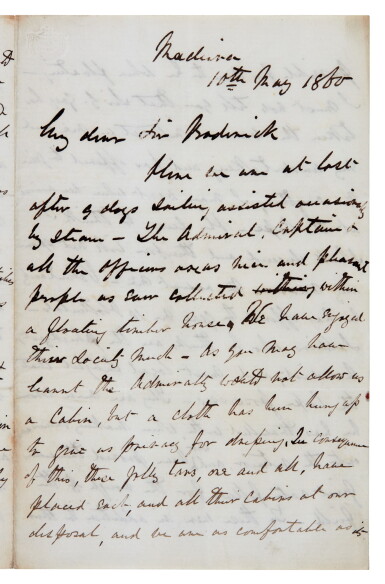 Madeira
10th May 1860
My dear Sir Roderick
Here we are at last
after 9 days sailing assisted occasionally
by steam – The Admiral, Captain &
all the officers are as nice and pleasant
people as ever collected within
a floating timber house. We have enjoyed
their society much – As you may have
learnt the Admiralty would not allow us
a cabin, but a cloth has been hung up
to give us privacy for sleeping, In consequence
of this, these jolly tars, one and all, have
placed each and all their cabins at our
disposal, and we are as comfortable as is